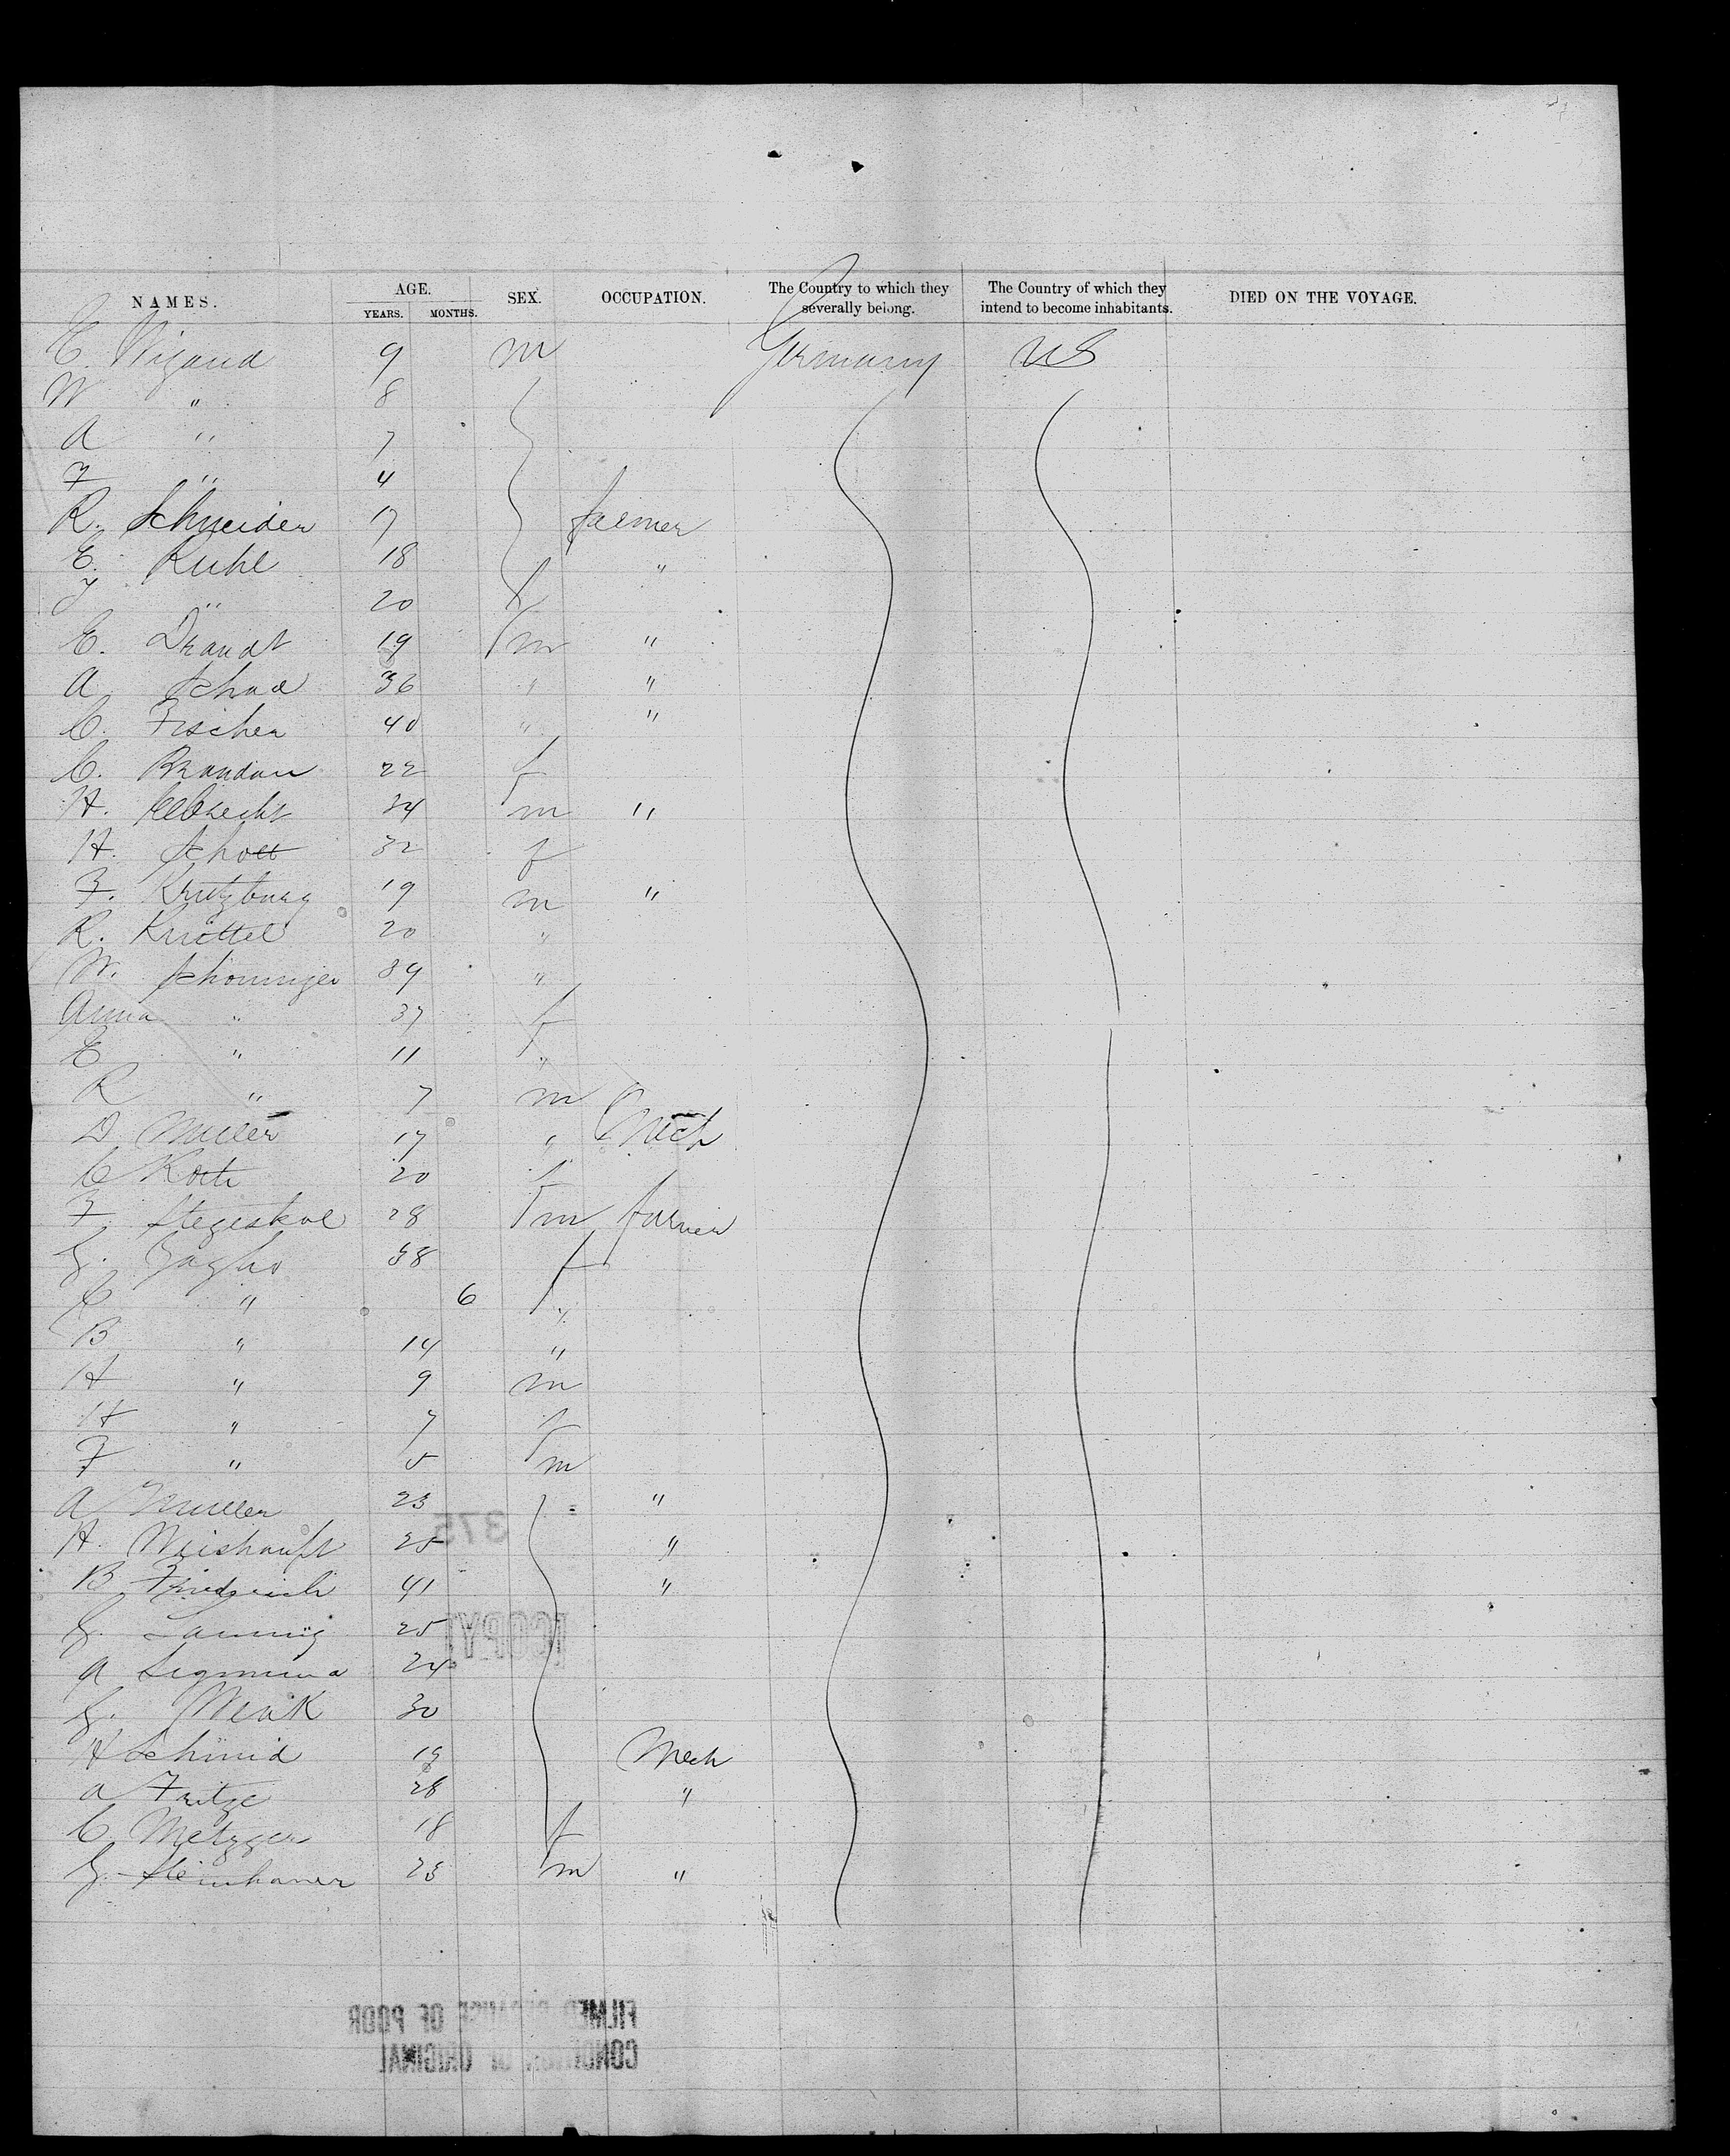 NAMES. AGE. YEARS. MONTHS. SEX. OCCUPATION. The Country to which they severally belong. The Country of which they intend to become inhabitants. DIED ON THE VOYAGE.
C. Wigand 9 m Germany US
W " 8
A " 7
F " 4
R. Schneider 17 farmer
E. Ruhl 18 "
J " 20 f
E. Brandt 19 m "
A Schad 36 " "
C. Fischer 40 " "
C. Brandau 22 f
H. 34 m "
H. Schott 32 f
F. Krutzburg 19 m "
R. Knittel 20 "
W. Schoninger 39 "
Anna " 37 f
E " 11 "
R " 7 m
D Muller 17 " Mech
C Koth 20 f
F. Stegeskal 28 m farmer
G. 38 f
C " 6 "
B " 14 "
H " 9 m
H " 7 f
F " 5 m
A Muller 23 "
H. Weishaupt 25 "
B Friedrich 41 "
G. 25
A Sigmund 24
G. 30
H Schmid 19 Mech
A Fritze 28 "
C. Metzger 18 f
G. Steinhaner 23 m "
375
[COPY]
FILMED BECAUSE OF POOR
CONDITION OF ORIGINAL